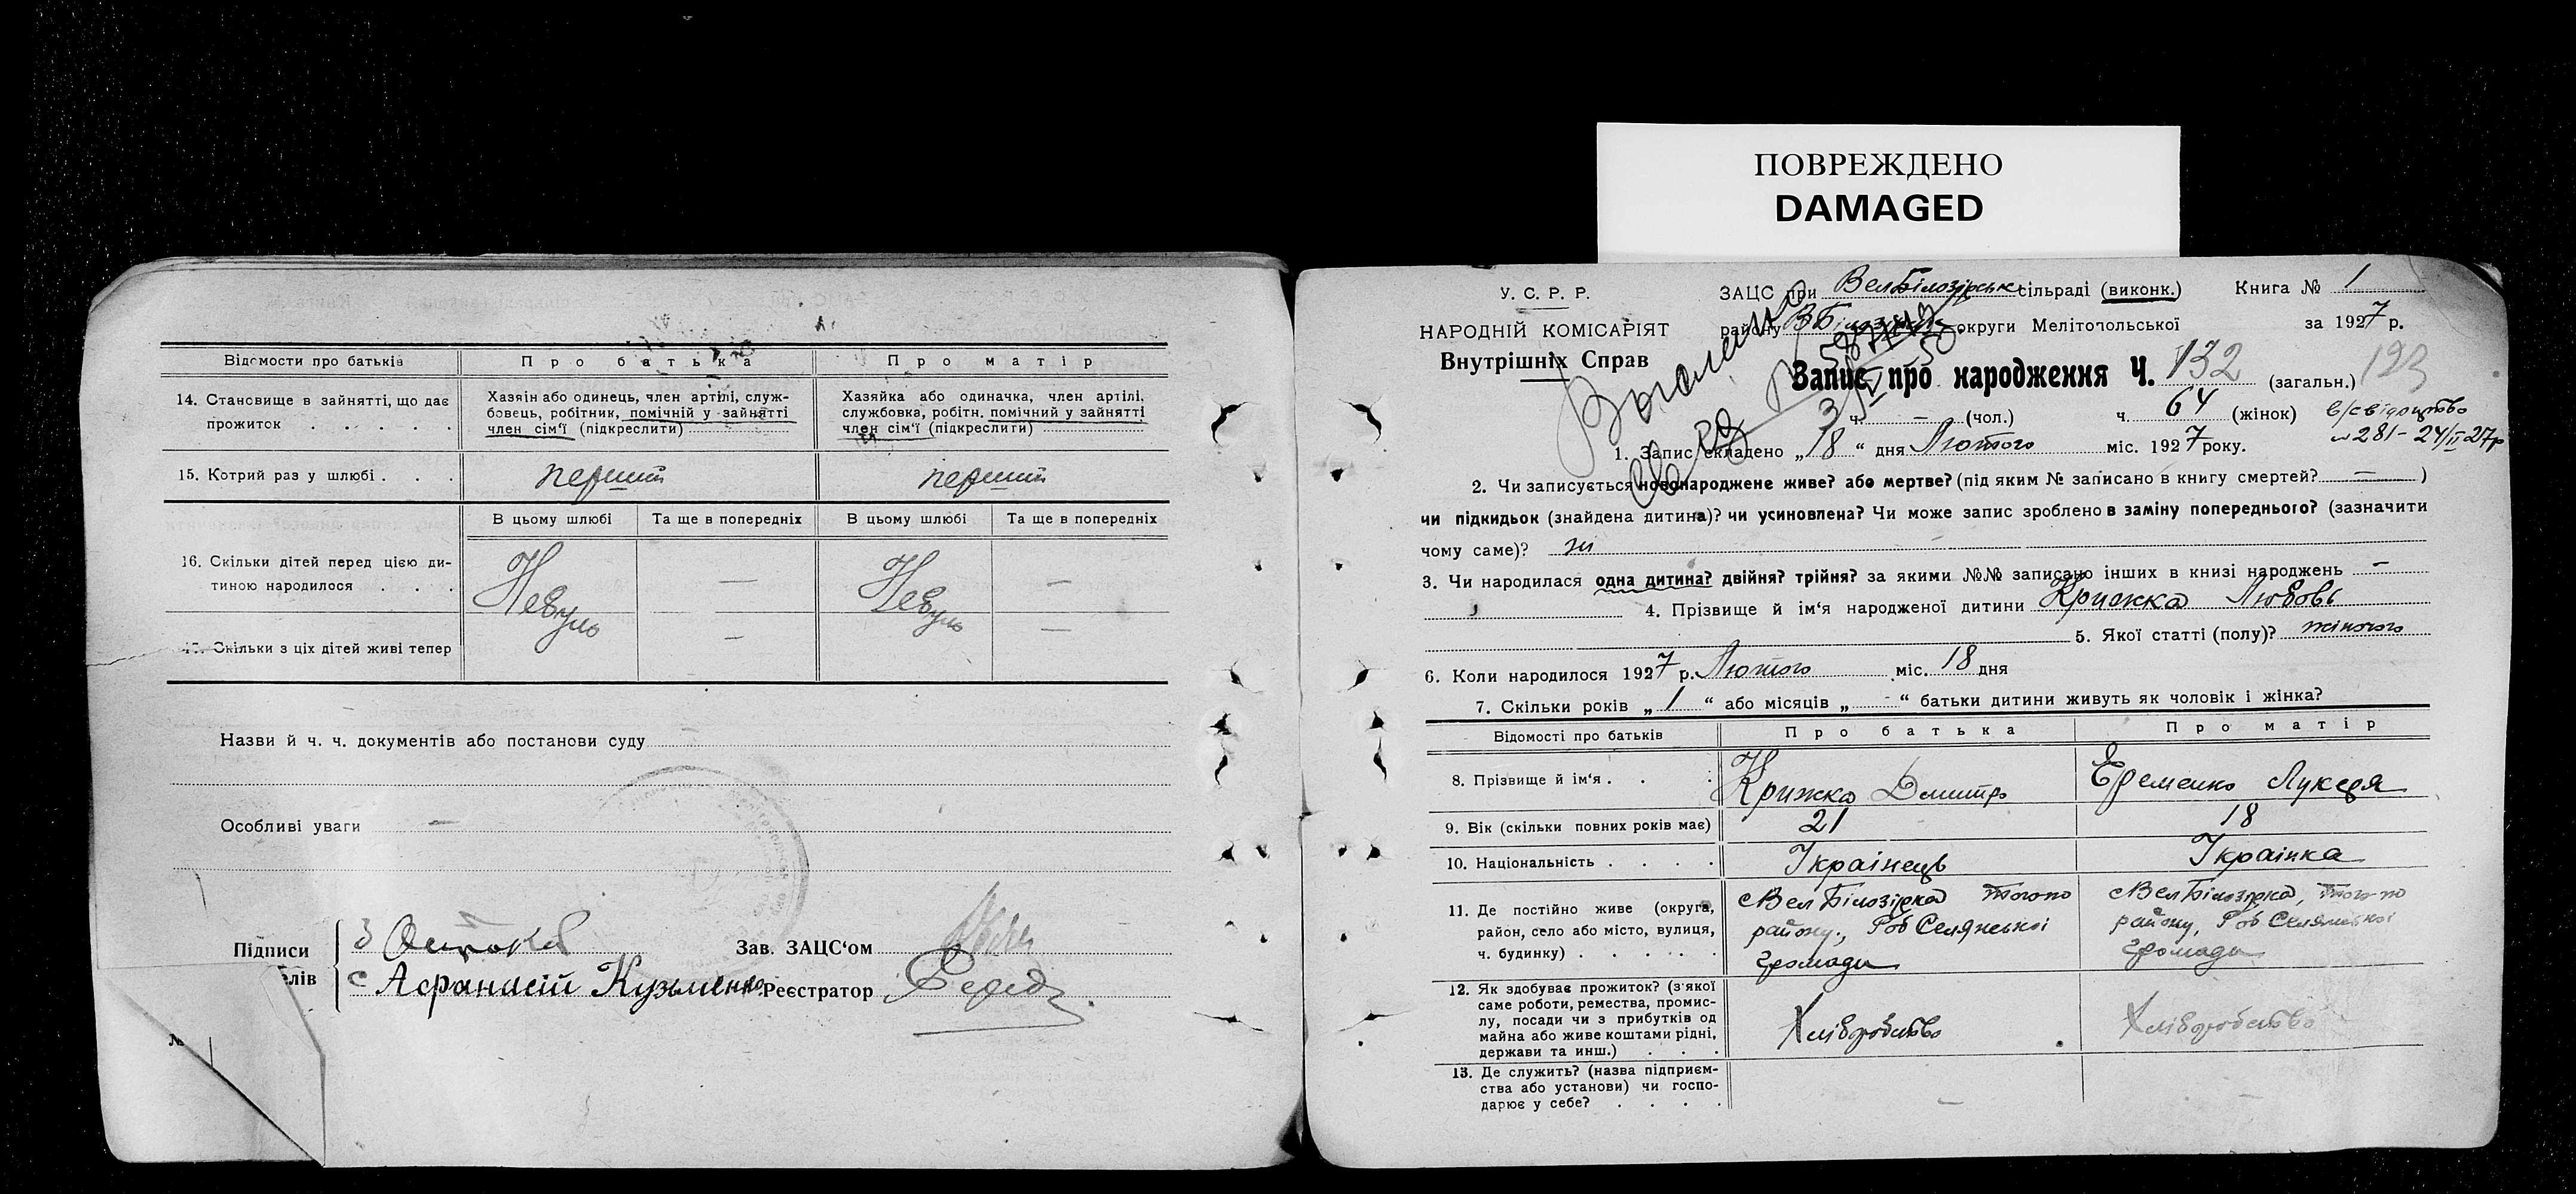 ПОВРЕЖДЕНО
DAMAGED
Відомости про батьків
Про батька
Про матір
14. Становище в зайнятті, що дає
прожиток
Хазяїн або одинець, член артілі, служ-
бовець, робітник, помічній у зайнятті
член сім‘ї (підкреслити)
Хазяйка або одиначка, член артілі,
службовка, робітн. помічний у зайнятті
член сім‘ї (підкреслити)
15. Котрий раз у шлюбі
перший
перший
В цьому шлюбі
Та ще в попередніх
В цьому шлюбі
Та ще в попередніх
16. Скільки дітей перед цією ди-
тиною народилося
—
—
17. Скільки з ціх дітей живі тепер
—
—
Назви й ч. ч. документів або постанови суду
Особливі уваги —
Підписи
Зав. ЗАЦС‘ом
елів
с Афанасій Кузьменко
Реєстратор
№
У. С. Р. Р.
НАРОДНІЙ КОМІСАРІЯТ
Внутрішніх Справ
ЗАЦС при ВелБілозірськ сільраді (виконк.)
Книга № 1
району округи Мелітопольської
за 1927 р.
Запис про народження Ч. 132 (загальн.) 123
ч. — (чол.)
ч. 64 (жінок)
в/свідоцтво
№ 281 - 24/II 27р
1. Запис складено „18“ дня Лютого міс. 1927 року.
2. Чи записується новонароджене живе? або мертве? (під яким № записано в книгу смертей? — )
чи підкидьок (знайдена дитина)? чи усиновлена? Чи може запис зроблено в заміну попереднього? (зазначити
чому саме)?
3. Чи народилася одна дитина? двійня? трійня? за якими №№ записано інших в книзі народжень —
4. Прізвище й ім‘я народженої дитини Крижка Любовь
5. Якої статті (полу)? жіночого
6. Коли народилося 1927 р. Лютого міс. 18 дня
7. Скільки років „1“ або місяців „-“ батьки дитини живуть як чоловік і жінка?
Відомості про батьків
Про батька
Про матір
8. Прізвище й ім‘я
Крижка Дмитро
Єременко Лукеря
9. Вік (скільки повних років має)
21
18
10. Національність
Українець
Українка
11. Де постійно живе (округа,
район, село або місто, вулиця,
ч. будинку)
сВел Білозірка того-по
району, Роб Селянської
громади
сВел Білозірка, того-по
району, Роб Селянської
громади
12. Як здобуває прожиток? (з‘якої
саме роботи, ремества, промис-
лу, посади чи з прибутків од
майна або живе коштами рідні,
держави та инш.)
Хліборобство
Хліборобство
13. Де служить? (назва підприєм-
ства або установи) чи госпо-
дарює у себе?
—
—